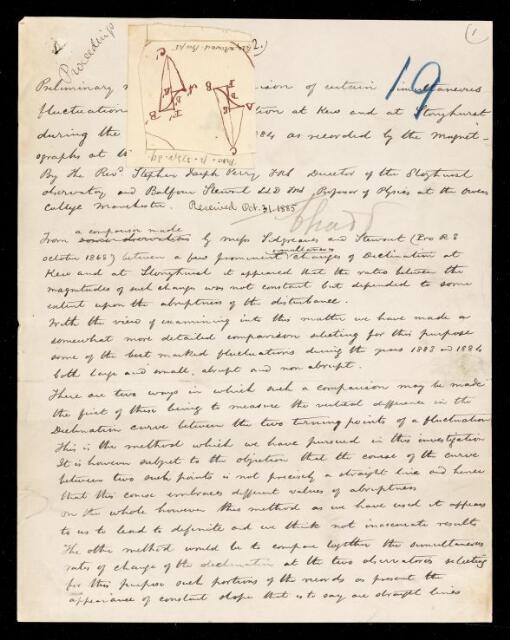 (1
Proceedings
2.)
19
Preliminary of certain simultaneous
fluctuation at Kew and at Stonyhurst
during the 1884 as recorded by the Magnet-
ographs at
By the Revd. Stephen Joseph Perry FRS Director of the Stonyhurst
observatory and Balfour Stewart LLD FRS Professor of Physics at the Owens
College Manchester. Received Oct. 31. 1885
a comparison made
From by messrs Sidgreaves and Stewart (Pro R S
simultaneous
october 1868) between a few prominent changes of Declination at
Kew and at Stonyhurst it appeared that the ratio between the
magnitudes of such change was not constant but depended to some
extent upon the abruptness of the disturbance.
With the view of examining into this matter we have made a
somewhat more detailed comparison selecting for this purpose
some of the best marked fluctuations during the years 1883 and 1884
both large and small, abrupt and non abrupt.
There are two ways in which such a comparison may be made
the first of these being to measure the vertical difference in the
Declination curve between the two turning points of a fluctuation
This is the method which we have pursued in this investigation
It is however subject to the objection that the course of the curve
between two such points is not precisely a straight line and hence
that this course embraces different values of abruptness
on the whole however this method as we have used it appears
to us to lead to definite and we think not inaccurate results
The other method would be to compare together the simultaneous
rates of change of the declination at the two observatories selecting
for this purpose such portions of the records as present the
appearance of constant slope that is to say are straight lines